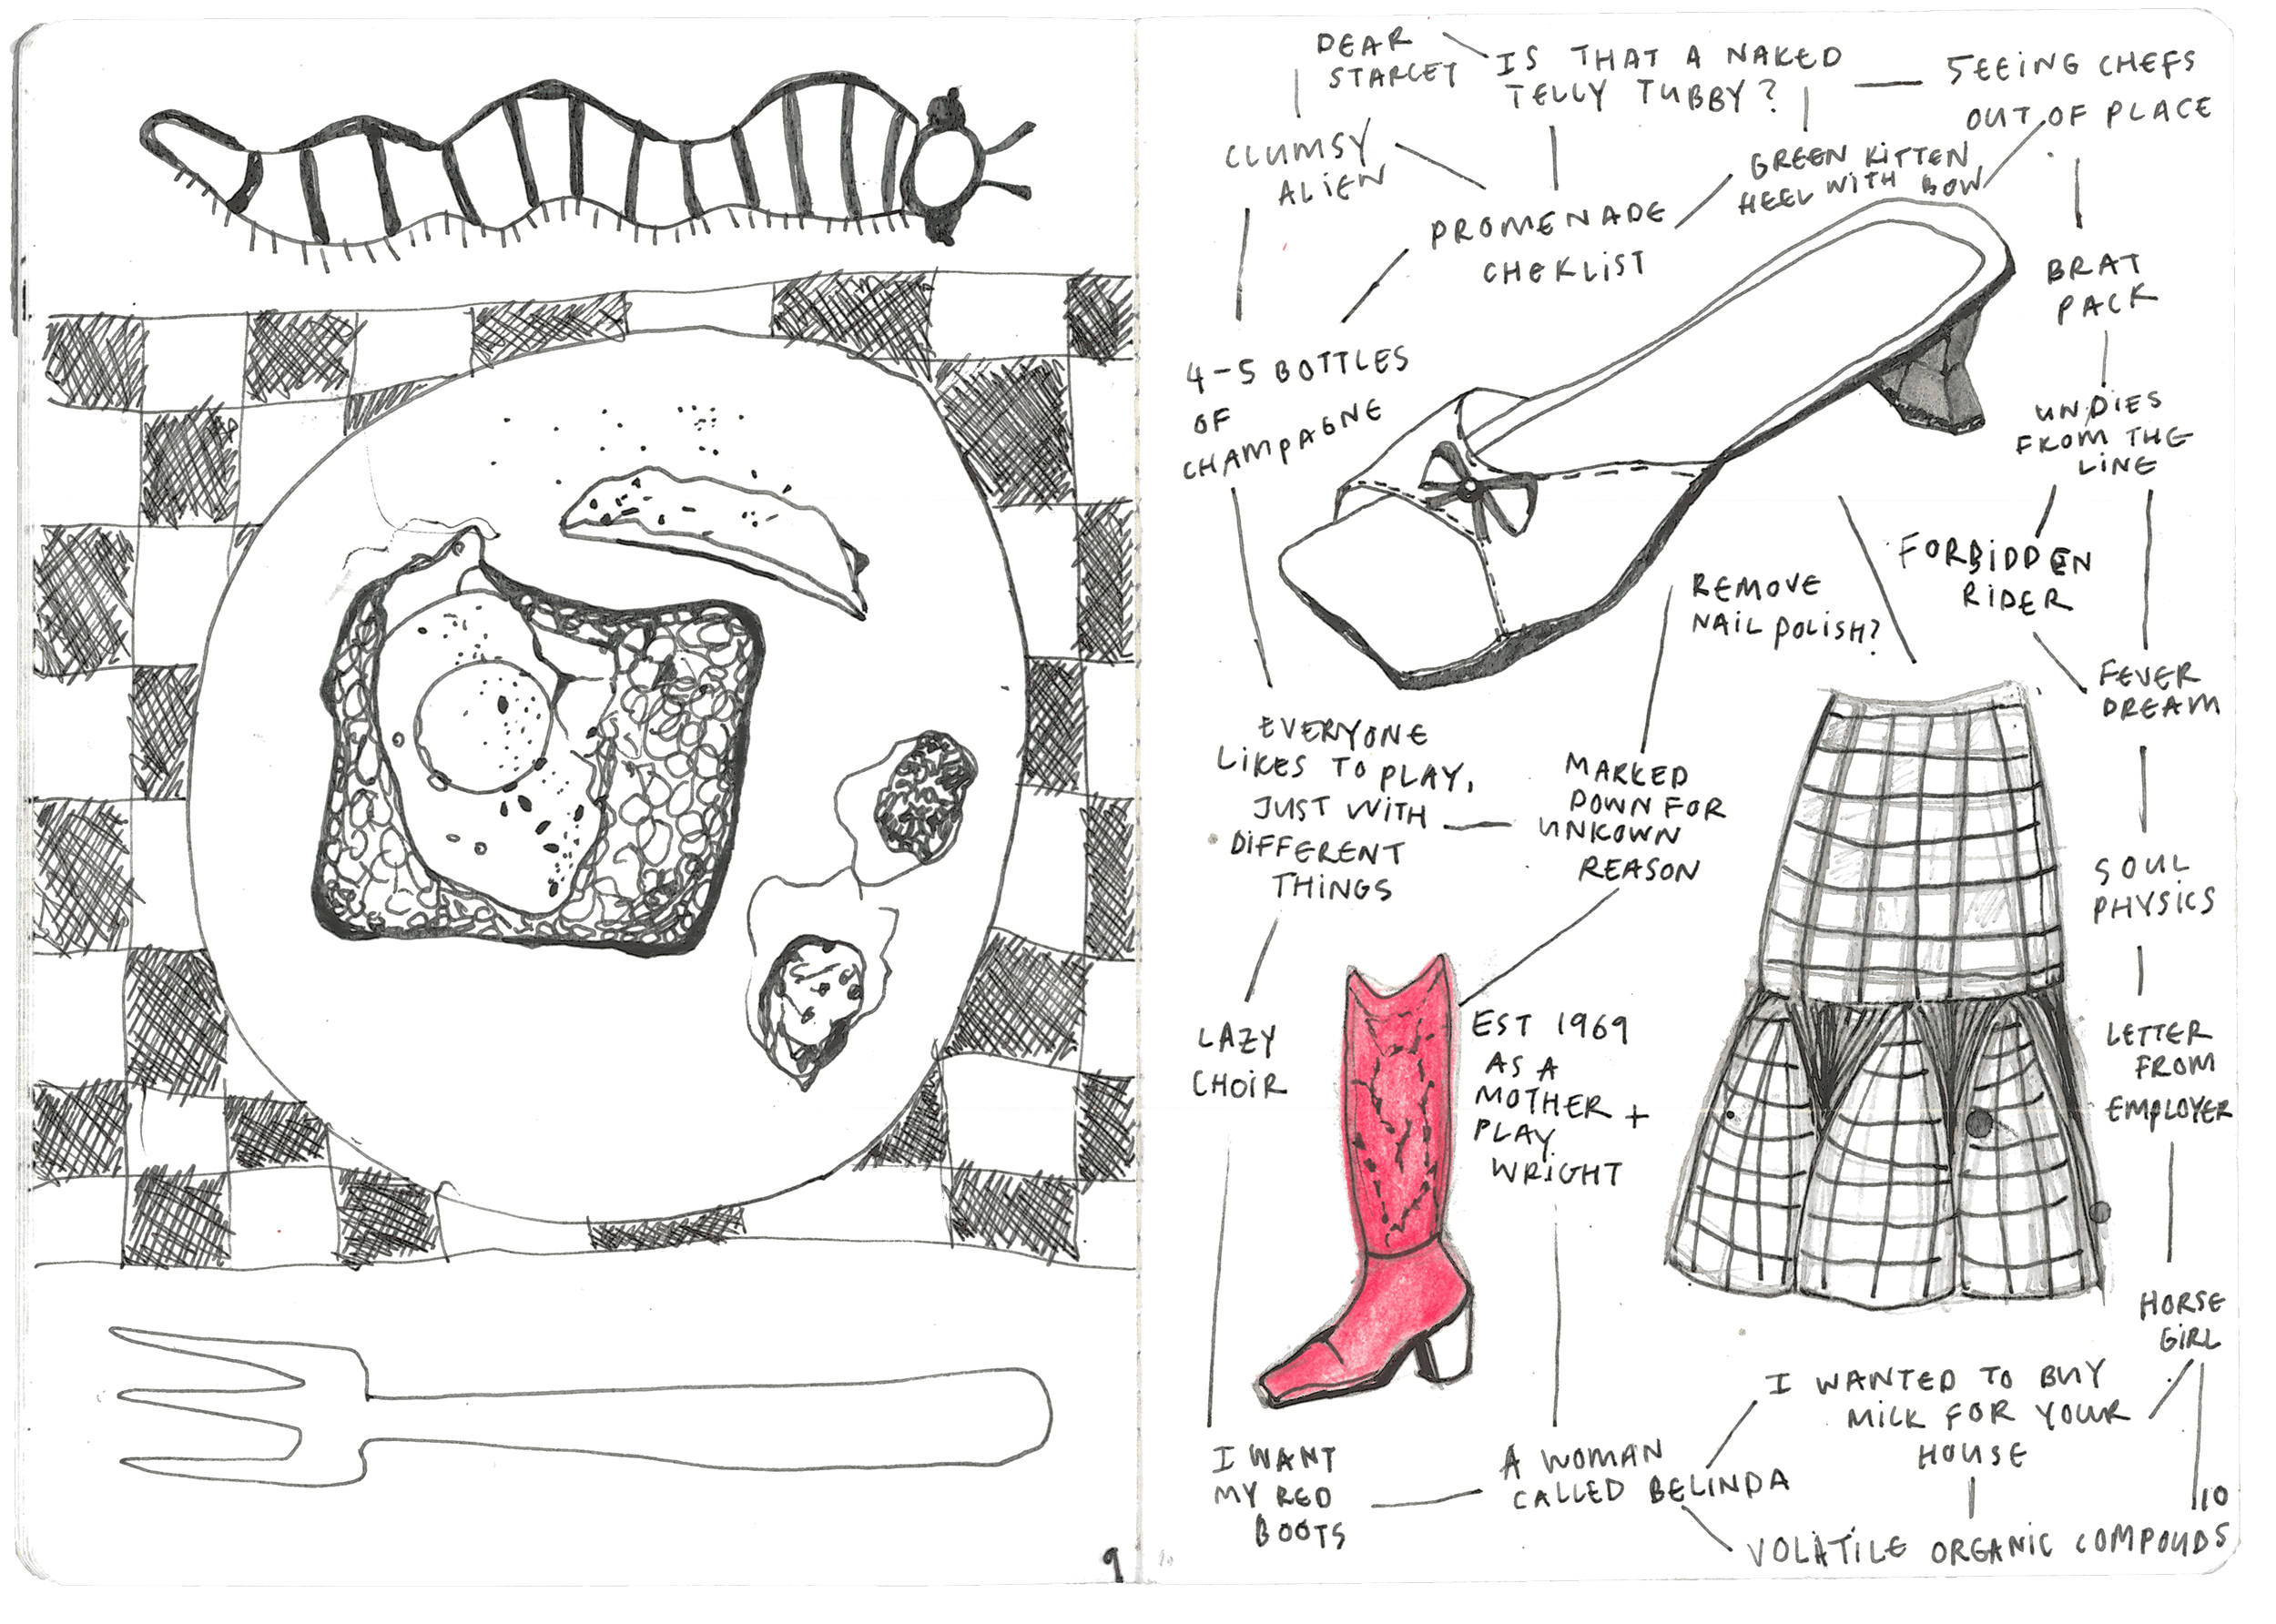 DEAR
STARLET
IS THAT A NAKED
TELLY TUBBY?
SEEING CHEFS
OUT OF PLACE
CLUMSY
ALIEN
GREEN KITTEN
HEEL WITH BOW
PROMENADE
CHEKLIST
BRAT
PACK
4-5 BOTTLES
OF
CHAMPAGNE
UNDIES
FROM THE
LINE
FORBIDDEN
RIDER
REMOVE
NAIL POLISH?
FEVER
DREAM
EVERYONE
LIKES TO PLAY,
JUST WITH
DIFFERENT
THINGS
MARKED
DOWN FOR
UNKOWN
REASON
SOUL
PHYSICS
LAZY
CHOIR
EST 1969
AS A
MOTHER +
PLAY
WRIGHT
LETTER
FROM
EMPLOYER
HORSE
GIRL
I WANTED TO BUY
MILK FOR YOUR
HOUSE
I WANT
MY RED
BOOTS
A WOMAN
CALLED BELINDA
VOLATILE ORGANIC COMPOUDS
9
10